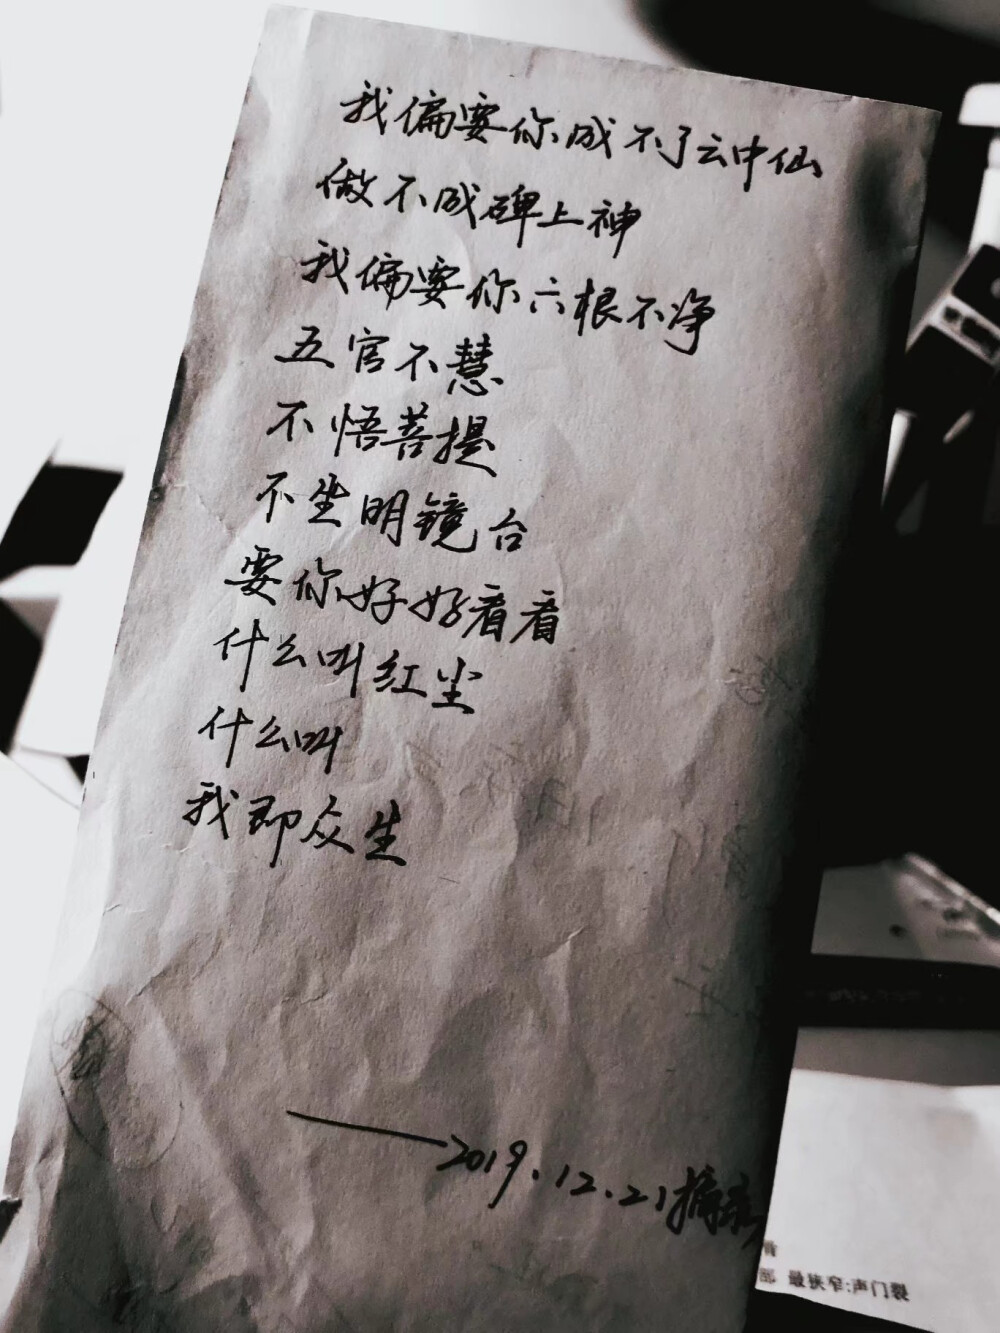 我偏要你成不了云中仙
做不成碑上神
我偏要你六根不净
五官不慧
不悟菩提
不坐明镜台
要你好好看看
什么叫红尘
什么叫
我即众生
——2019.12.21摘录
部 最狭窄:声门裂